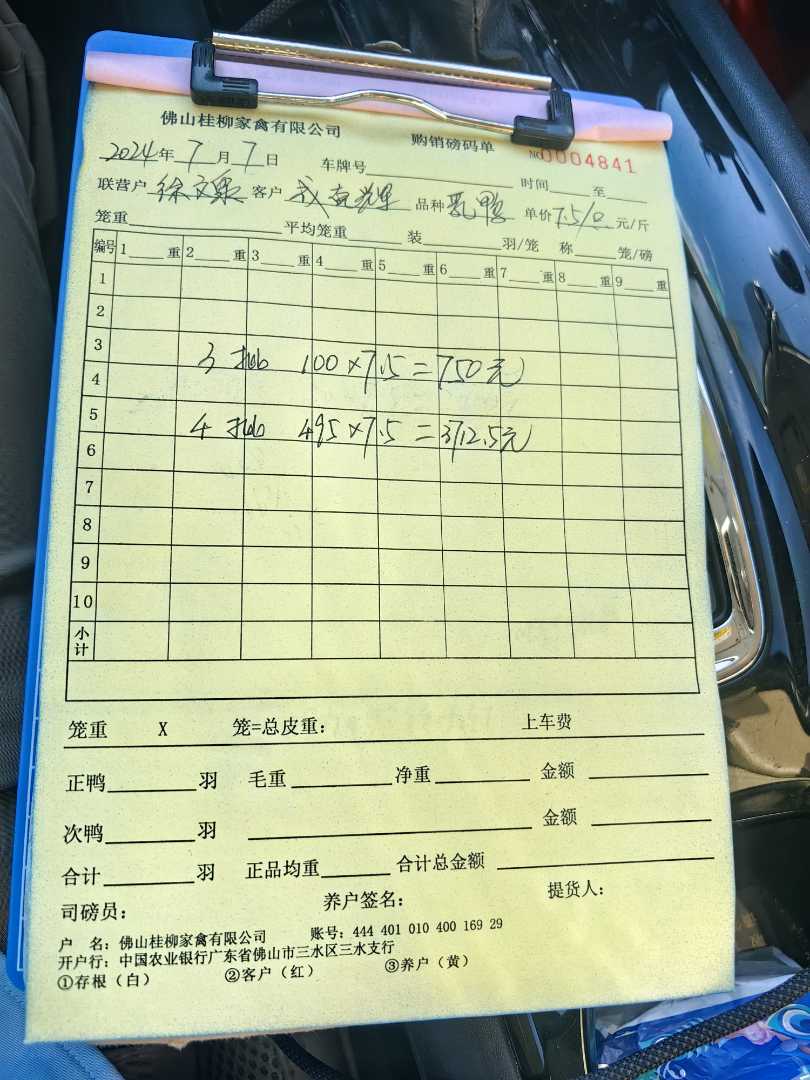 佛山桂柳家禽有限公司 购销磅码单 № 0004841
2024年 7月 7日 车牌号 时间 至
联营户 徐文 客户 辉 品种 乳鸭 单价 7.5/ 元/斤
笼重 平均笼重 装 羽/笼 称 笼/磅
编号 1 重 2 重 3 重 4 重 5 重 6 重 7 重 8 重 9 重
1
2
3
3批 100×7.5=750元
4
5
4批 495×7.5=3712.5元
6
7
8
9
10
小计
笼重 X 笼=总皮重: 上车费
正鸭 羽 毛重 净重 金额
次鸭 羽 金额
合计 羽 正品均重 合计总金额
司磅员: 养户签名: 提货人:
户 名: 佛山桂柳家禽有限公司 账号: 444 401 010 400 169 29
开户行: 中国农业银行广东省佛山市三水区三水支行
①存根(白) ②客户(红) ③养户(黄)